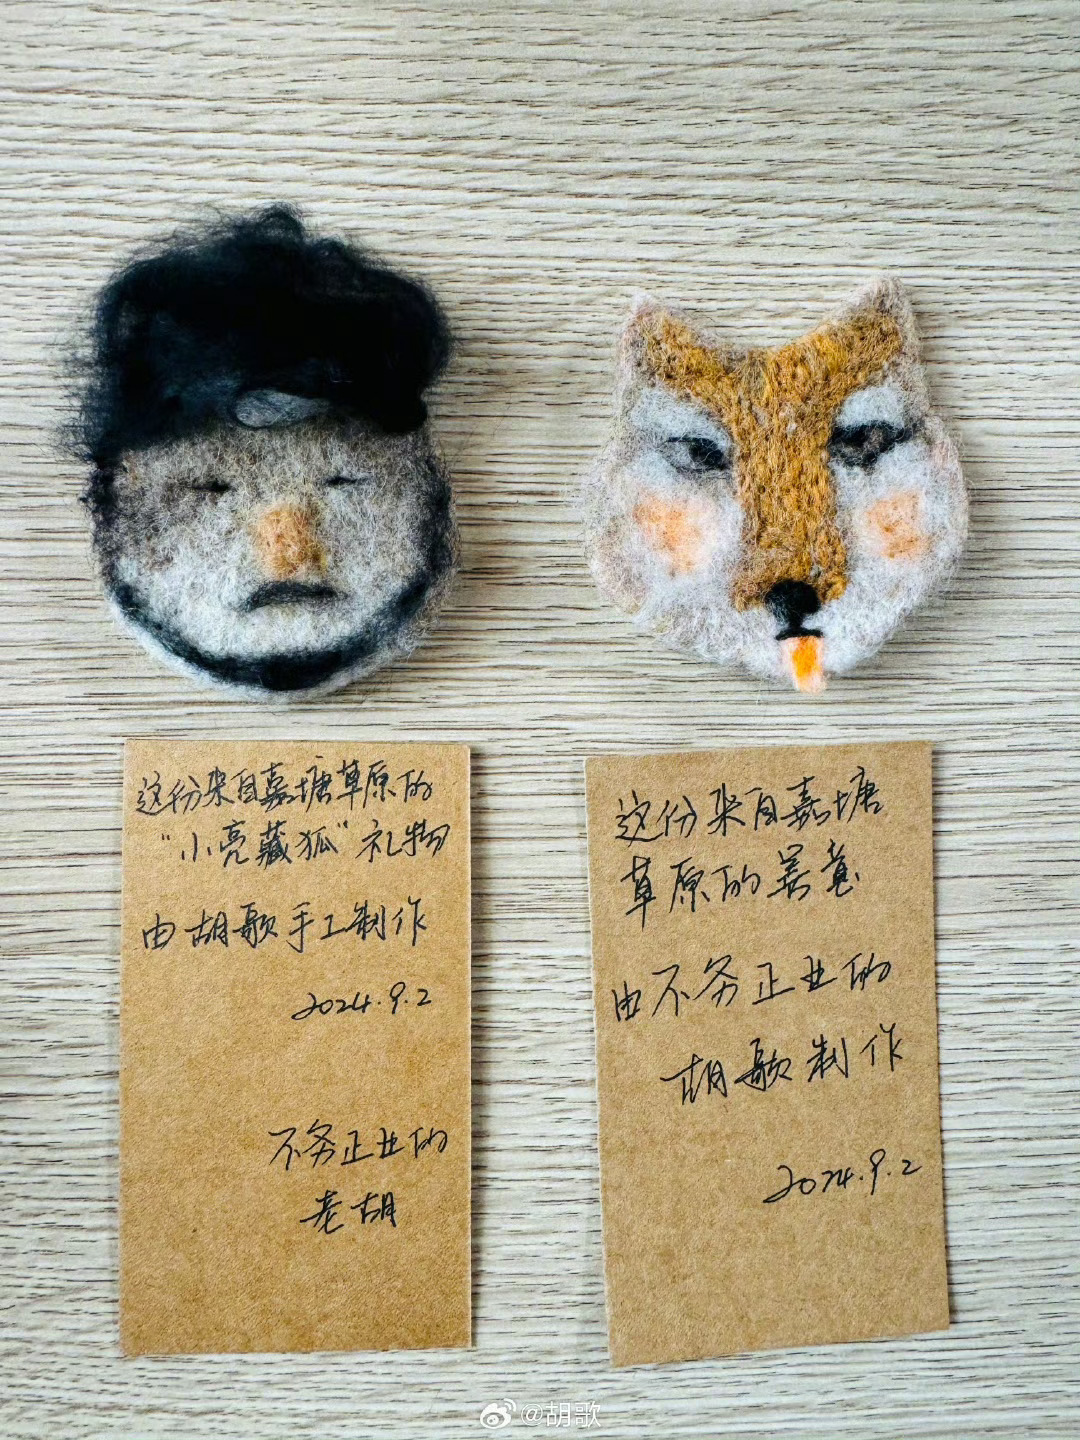 这份来自嘉塘草原的
“小亮藏狐”礼物
由胡歌手工制作
2024.9.2
不务正业的
老胡
这份来自嘉塘
草原的善意
由不务正业的
胡歌制作
2024.9.2
@胡歌